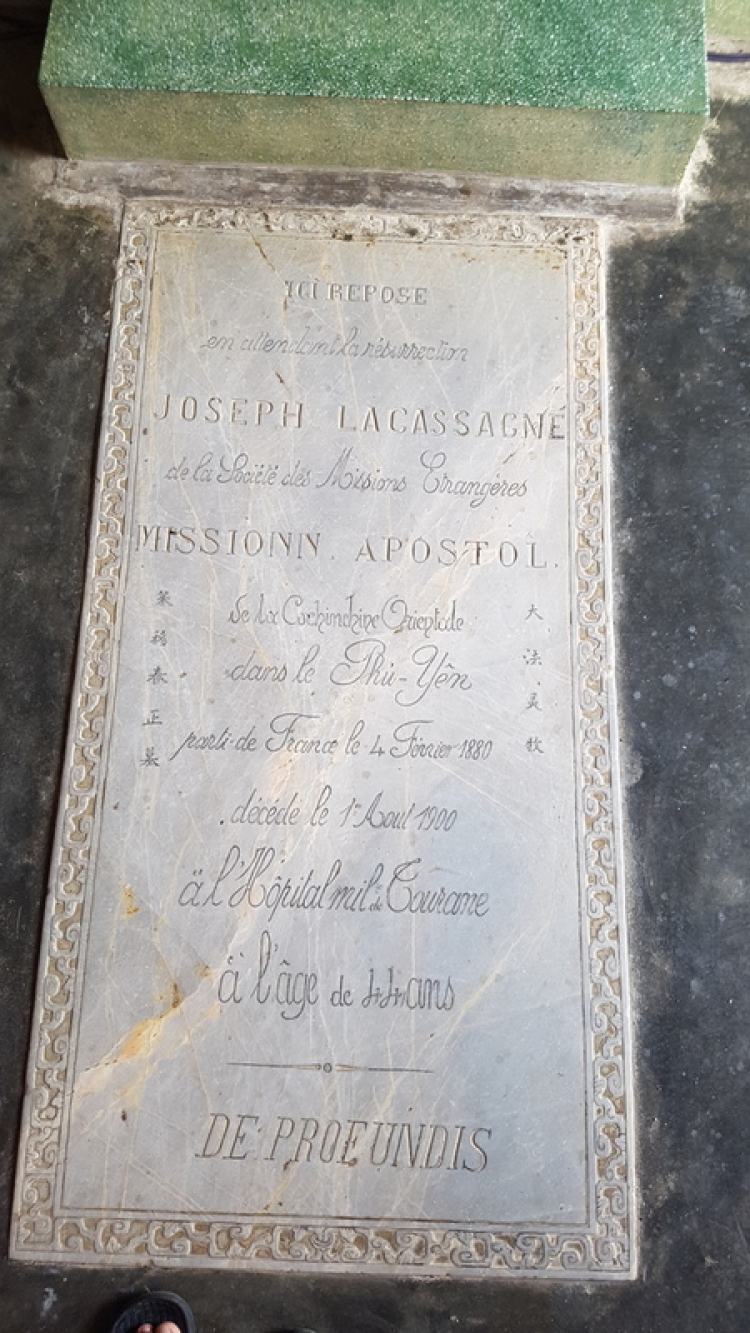 ICI REPOSE
en attendant la résurrection
JOSEPH LACASSAGNE
de la Société des Missions Etrangères
MISSIONN. APOSTOL.
de la Cochinchine Orientale
dans le Phú-Yên
parti de France le 4 Février 1880
décédé le 1er Aout 1900
à l'Hôpital mil. de Tourane
à l'âge de 44 ans
DE PROFUNDIS
大法 牧
春正墓